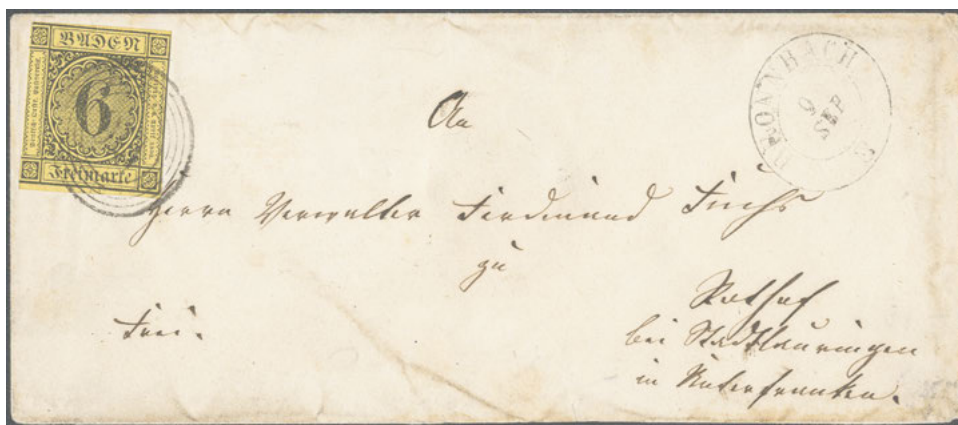 BADEN
6
Freimarke
BRONNBACH
9
SEP
An
Herrn Verwalter Ferdinand Fuchs
zu
Rothhof
bei Stadtlauringen
in Unterfranken.
Frei.